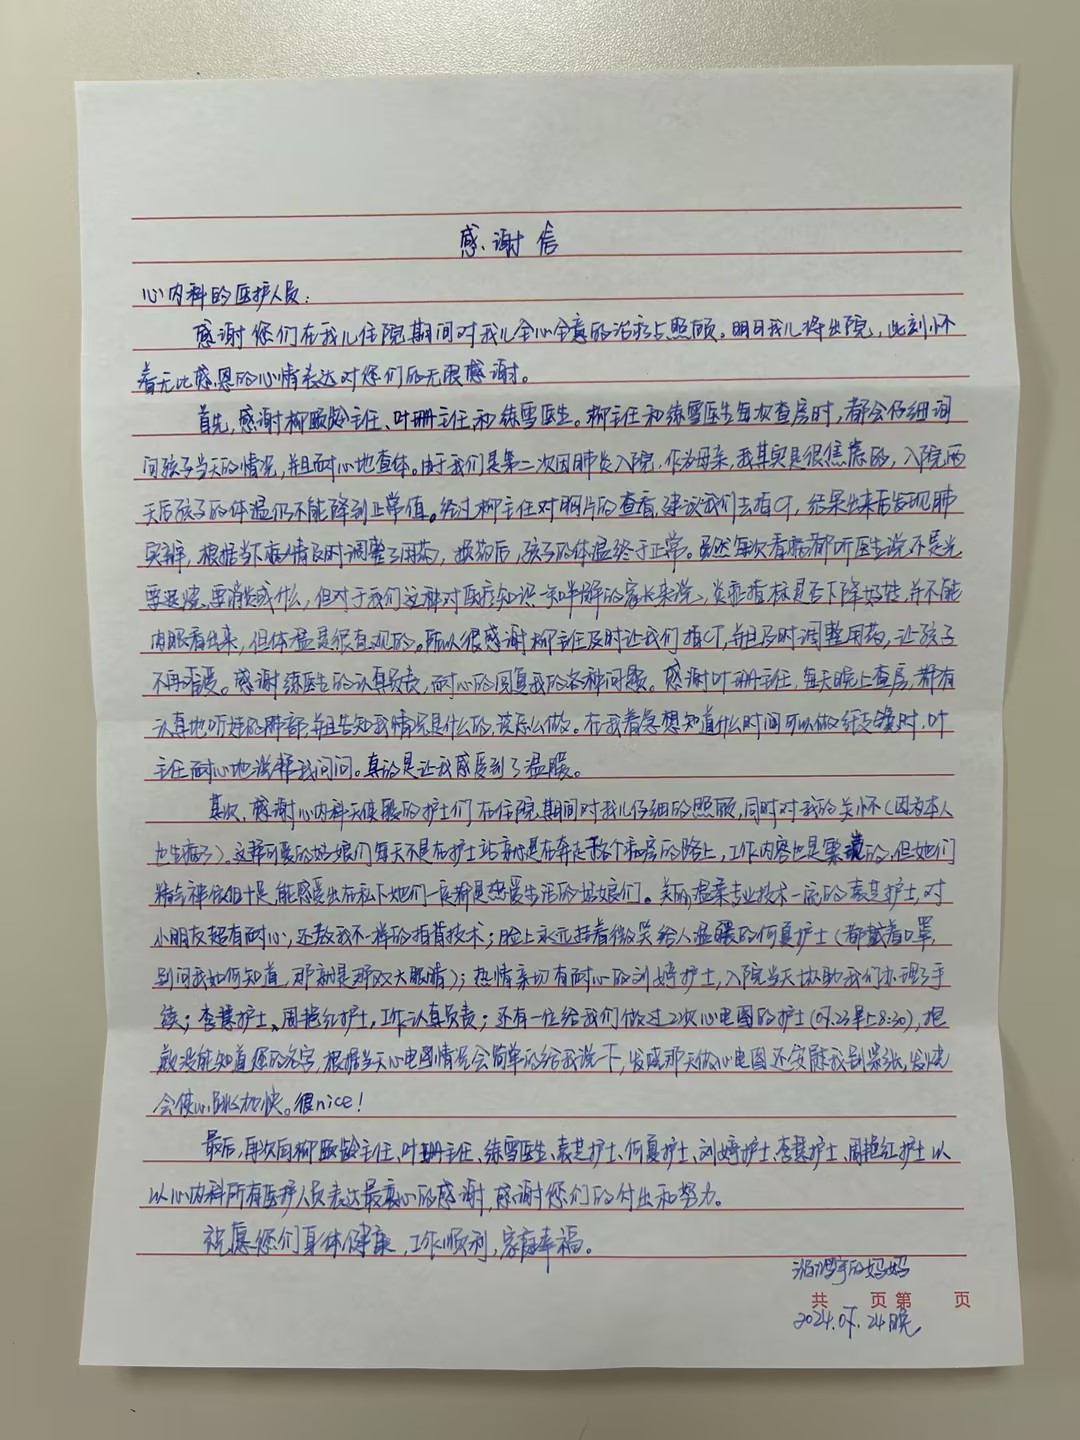 感谢信
心内科的医护人员：
感谢您们在我儿住院期间对我儿全心全意的治疗与照顾。明日我儿将出院，此刻怀
着无比感恩的心情表达对您们的无限感谢。
首先，感谢柳颐龄主任、叶珊主任和练雪医生。柳主任和练雪医生每次查房时，都会仔细询
问孩子当天的情况，并且耐心地查体。由于我们是第二次因肺炎入院，作为母亲，我其实是很焦虑的，入院两
天后孩子的体温仍不能降到正常值。经过柳主任对照片的查看，建议我们去拍CT，结果出来后发现肺
实变，根据当下病情及时调整了用药，换药后，孩子的体温终于正常。虽然每次看病都听医生说，不是光
要退烧，要消炎或什么，但对于我们这种对医疗知识一知半解的家长来说，炎症指标是否下降好转，并不能
肉眼看出来，但体温是很直观的。所以很感谢柳主任及时让我们拍CT，并且及时调整用药，让孩子
不再难受。感谢练医生的认真负责，耐心的回复我的各种问题。感谢叶珊主任，每天晚上查房，都有
认真地听娃的肺部，并且告知我情况是什么的，该怎么做。在我着急想知道什么时间可以做纤支镜时，叶
主任耐心地说帮我问问。真的是让我感受到了温暖。
其次，感谢心内科天使般的护士们在住院期间对我儿仔细的照顾，同时对我的关怀（因为本人
也生病了）。这群可爱的姑娘们每天不是在护士站就是在奔走于各个病房的路上，工作内容也是繁琐的，但她们
精气神依旧十足，能感受出在私下她们一定都是热爱生活的姑娘们。美丽，温柔专业技术一流的袁芷护士，对
小朋友超有耐心，还教我不一样的拍背技术；脸上永远挂着微笑给人温暖的何夏护士（都戴着口罩，
别问我如何知道，那就是那双大眼睛）；热情亲切有耐心的刘婷护士，入院当天协助我们办理了手
续；李慧护士、周艳红护士，工作认真负责；还有一位给我们做过2次心电图的护士(07.23早上8:30)，抱
歉没能知道您的名字，根据当天心电图情况会简单的给我说一下，发烧那天做心电图还安慰我别紧张，发烧
会使心跳加快。很nice！
最后，再次向柳颐龄主任、叶珊主任、练雪医生、袁芷护士、何夏护士、刘婷护士、李慧护士、周艳红护士以
以心内科所有医护人员表达最衷心的感谢，感谢您们的付出和努力。
祝愿您们身体健康，工作顺利，家庭幸福。
的妈妈
共 页 第 页
2024.07.24晚